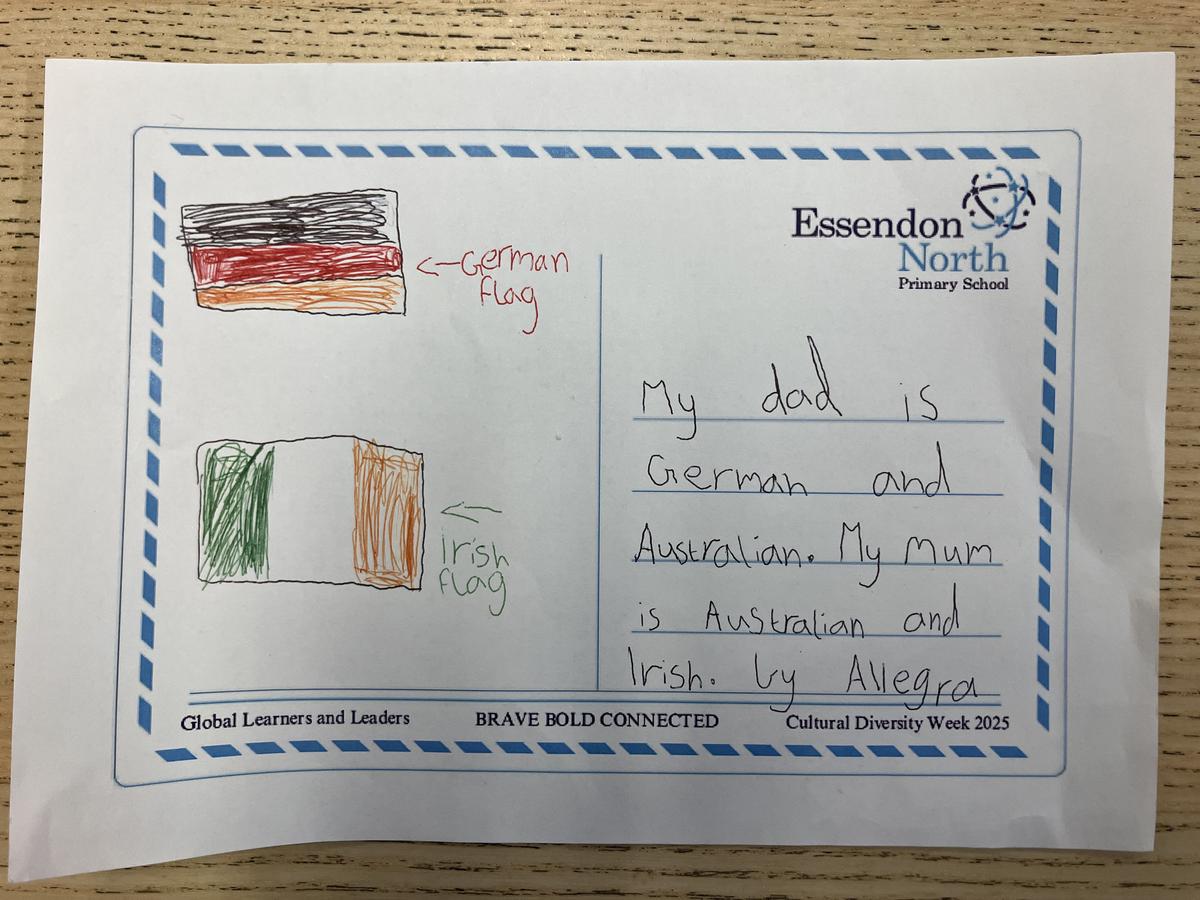 Essendon
North
Primary School
←German
flag
Irish
flag
My dad is
German and
Australian. My Mum
is Australian and
Irish. by Allegra
Global Learners and Leaders
BRAVE BOLD CONNECTED
Cultural Diversity Week 2025